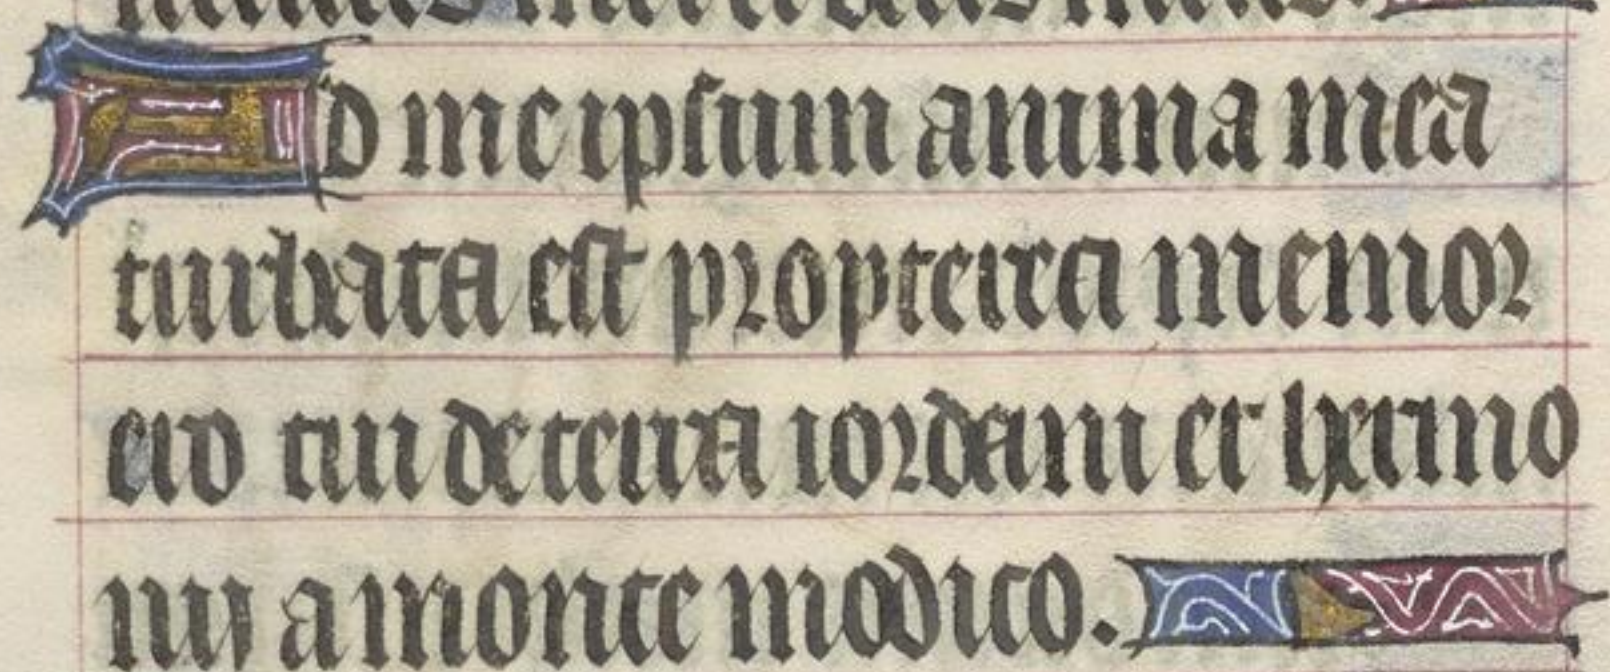 Ad me ipsum anima mea
turbata est propterea memor
ero tui de terra iordani et hermo
nii a monte modico.